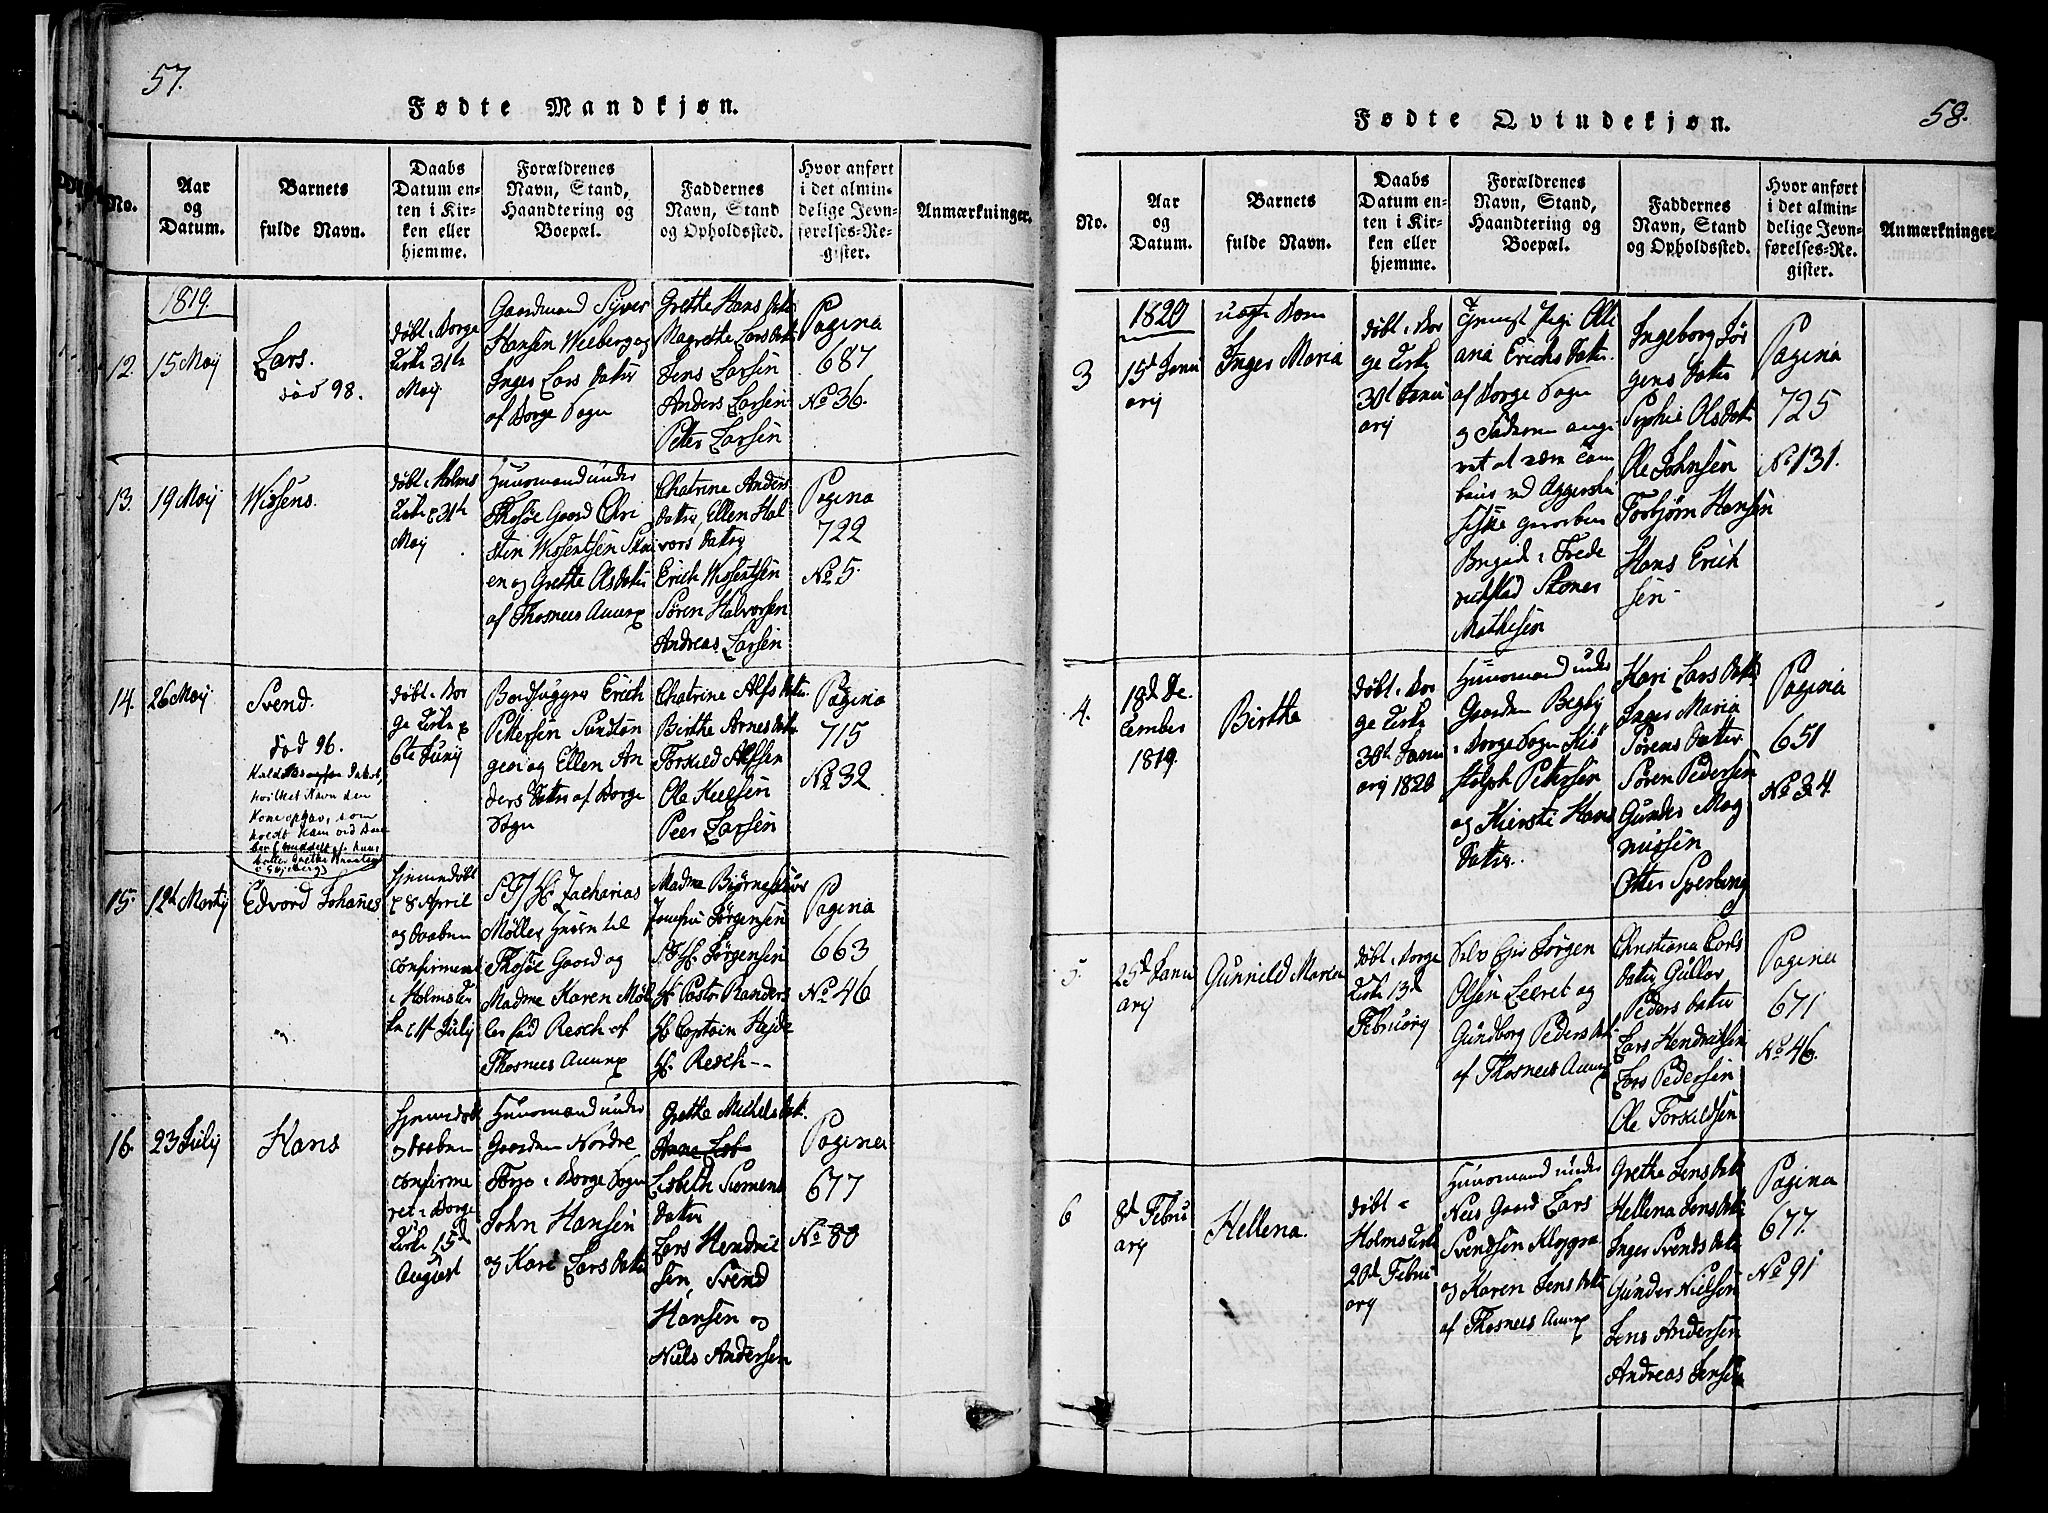 57.
Fødte Mandkjøn.
No.
Aar
og
Datum.
Barnets
fulde Navn.
Daabs
Datum en-
ten i Kir-
ken eller
hjemme.
Forældrenes
Navn, Stand,
Haandtering og
Boepæl.
Faddernes
Navn, Stand
og Opholdssted.
Hvor anført
i det almin-
delige Jevn-
førelses-Re-
gister.
Anmærkninger.
1819.
12.
15 Maj
Lars.
død 98.
døbt i Borge
Kirke 31te
Maj
Gaardmand Syver
Hansen Weeberg og
Inger Lars Datter
af Borge Sogn
Grethe Hans Datr
Magrethe Lars Datr
Jens Larsen
Anders Larsen
Peter Larsen
Pagina
687
No 36.
13.
19 Maj
døbt i Holms
Kirke d 31te
Maj
Huusmand under
Thosøe Gaard Chri
en og Grethe Olsdatter
af Thosnees Annex
Chatrine Anders
Datter, Ellen Hal
vors Datter
Erich
Søren Halvorsen
Andreas Larsen
Pagina
722
No 5.
14.
26 Maj
Svend.
død 96.
hvilket Navn den
Kone opgav, som
døbt i Bor
ge Kirke
6te Juny
Erich
Pettersen
gen og Ellen An
ders Datter af Borge
Sogn
Chatrine Alfs Datr
Birthe Arnes Datr
Torkild Alfsen
Ole
Peer Larsen
Pagina
715
No 32
15.
12te Marty
Edvard Johannes
hjemmedøbt
d 8 April
og Daaben
confirmeret
i Holms Kir
ke d 1ste July
Zacharias
Møller
Thosøe Gaard og
Madme Karen Møl
ler fød Resch af
Thosnees Annex
Madme
Jomfrue Jørgensen
Jørgensen
Hr Pastor Randers
Hr Captein Hejde
Hr Resch --
Pagina
663
No 46
16.
23 July
Hans
hjemmedøbt
og Daaben
confirme
ret i Borge
Kirke 15de
August
Huusmand under
Gaarden Nordre
Torp i Borge Sogn
John Hansen
og Kari Lars Datter
Grethe Michels Datr.
Lisbeth Simens
Datter
Lars Hendric
sen, Svend
Hansen og
Niels Andersen
Pagina
677
No 80
58.
Fødte Qvindekjøn.
No.
Aar
og
Datum.
Barnets
fulde Navn.
Daabs
Datum en-
ten i Kir-
ken eller
hjemme.
Forældrenes
Navn, Stand,
Haandtering og
Boepæl.
Faddernes
Navn, Stand
og Opholdssted.
Hvor anført
i det almin-
delige Jevn-
førelses-Re-
gister.
Anmærkninger.
1820
3
15de Janu
arj
uægte Barn
Inger Maria
døbt i Bor
ge Kirke
30te Janu
arj
Pige Ole
ana Erichs Datter
af Borge Sogn
og Faderen ange
vet at være
ved Aggershu
siske
Brigade i Frede
richstad
Mathesen
Ingeborg Jør
gens Datter
Sophie Olsdatr
Ole Johnsen
Torbjørn Hansen
Hans Erich
sen -
Pagina
725
No 131.
4.
18de De
cember
1819.
Birthe
døbt i Bor
ge Kirke
30te Janu
arj 1820
Huusmand under
Gaarden Begby
i Borge Sogn Chri
stoph Pettersen
og Kiersti Hans
Datter.
Kari Lars Datr
Inger Maria
Sørens Datter
Søren Pedersen
Gunder Mag
nussen
Otter Sperling
Pagina
651
No 34.
5.
25de Janu
arj
Gunnild Maria
døbt i Borge
Kirke 13de
Februarj
Selv Ejer Jørgen
Olsen Leeret og
Gundborg Peders Datr
af Thosnees Annex
Christiana Carls
Datter Gullov
Peders Datter
Lars Hendricsen
Lars Pedersen
Ole Torkildsen
Pagina
671
No 46.
6
8de Febru
arj
Hellena.
døbt i
Holms Kirke
20de Febru
arj
Huusmand under
Nees Gaard Lars
Svendsen
og Karen Jens Datter
af Thosnees Annex
Grethe Jens Datr
Hellena Jens Datr
Inger Svends Datr
Gunder Nielsen
Jens Andersen
Andreas Jensen
Pagina
677.
No 91